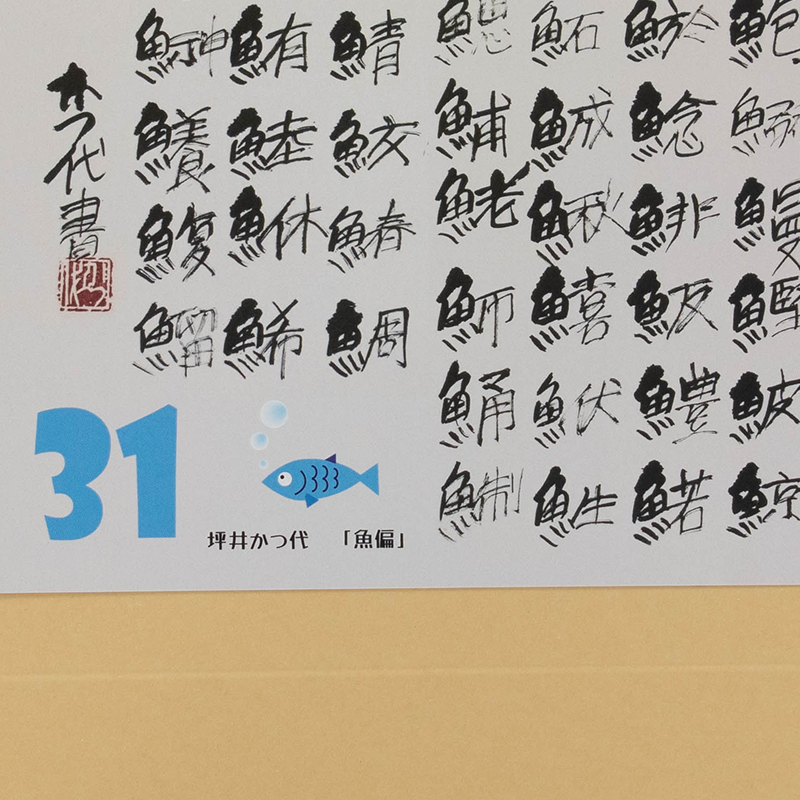 鮑鰻鰹鮍鯨
鯲鯰鯡魬鱧鰙
鮖鯎鰍鱚鮲鮏
鯆鮱魳鯒鯯
鯖鮫鰆鯛
鮪鯥鮴鯑
鰰鱶鰒鰡
かつ代書
31
坪井かつ代 「魚偏」